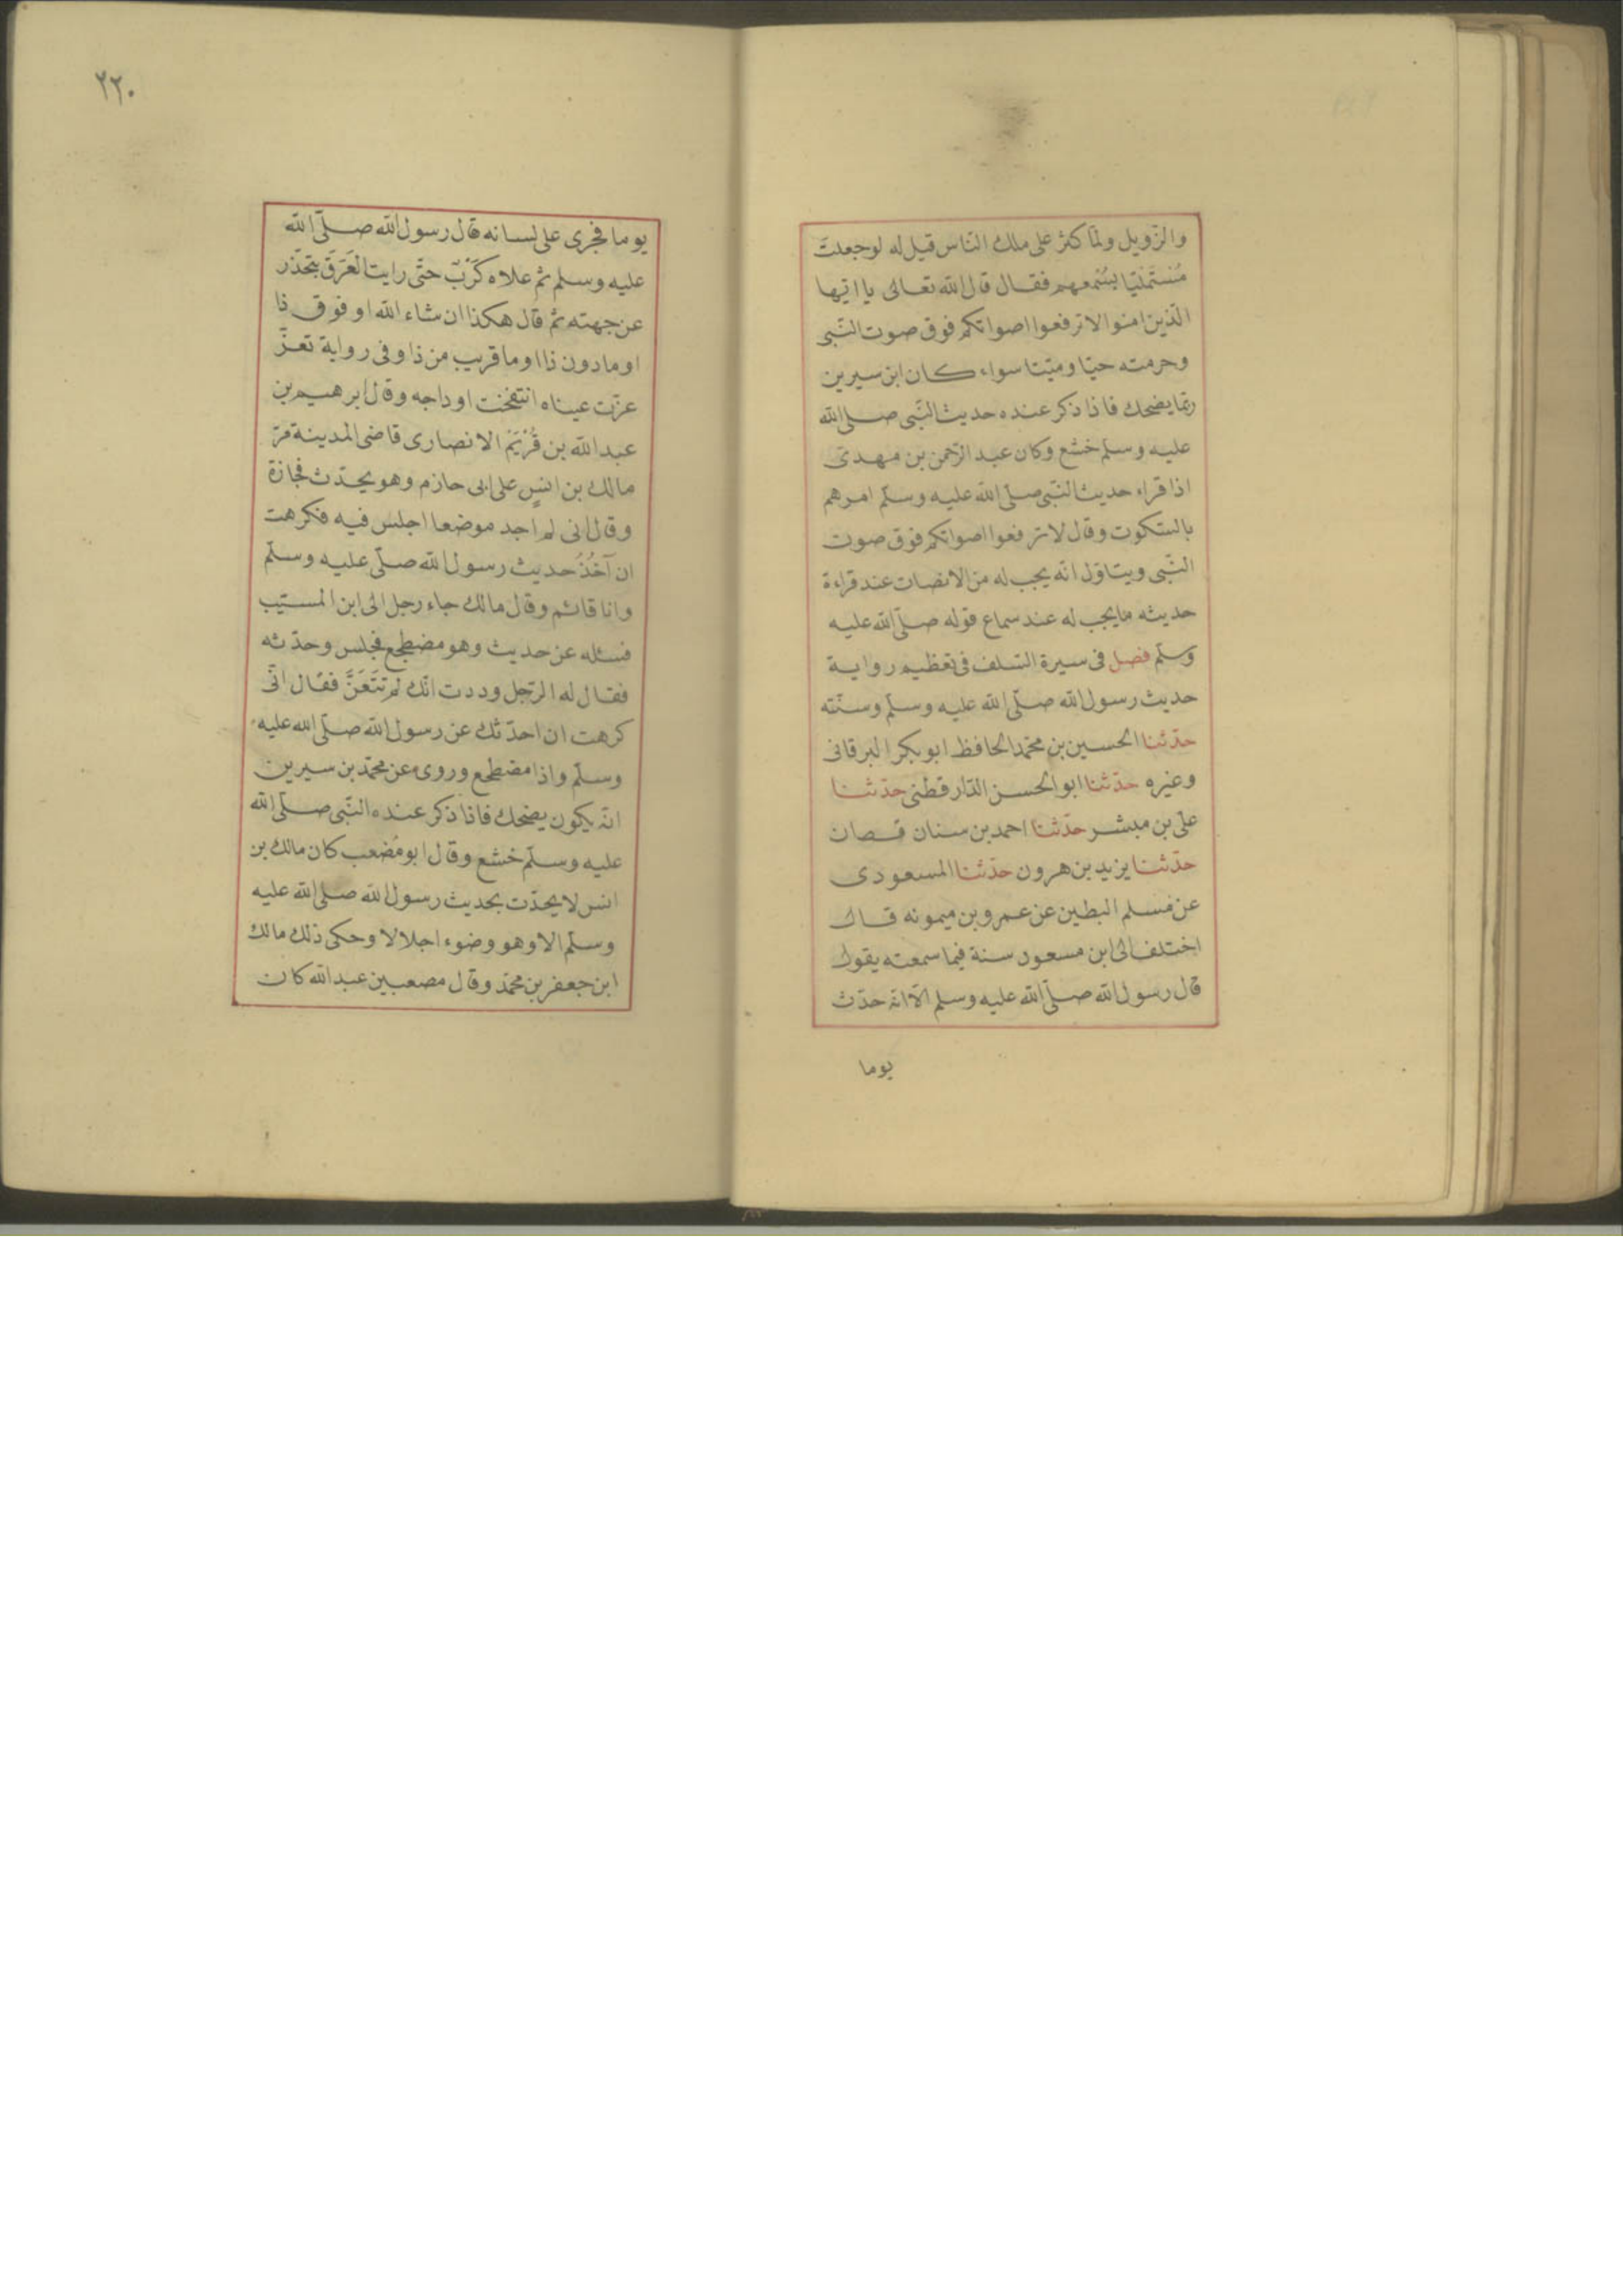 والزويل ولمّا كثر على ملك الناس قيل له لو جعلت
مُسْتَمْلِيًا يسمعهم فقال قال الله تعالى يا ايّها
الّذين امنوا لا ترفعوا اصواتكم فوق صوت النّبى
وحرمته حيّا وميّتا سواء كان ابن سيرين
ربّما يضحك فاذا ذكر عنده حديث النّبى صلى الله
عليه وسلّم خشع وكان عبد الرّحمن بن مهدىّ
اذا قراء حديث النّبى صلّى الله عليه وسلّم امرهم
بالسّكوت وقال لا ترفعوا اصواتكم فوق صوت
النّبى ويتاوّل انّه يجب له من الانصات عند قراءة
حديثه ما يجب له عند سماع قوله صلّى الله عليه
وسلّم فصل فى سيرة السّلف فى تعظيم رواية
حديث رسول الله صلّى الله عليه وسلّم وسنّته
حدّثنا الحسين بن محمّد الحافظ ابو بكر البرقانى
وغيره حدّثنا ابو الحسن الدّارقطنى حدّثنا
علىّ بن مبشر حدّثنا احمد بن سنان قصان
حدّثنا يزيد بن هرون حدّثنا المسعودى
عن مسلم البطين عن عمرو بن ميمونه قال
اختلف الى ابن مسعود سنة فيما سمعته يقول
قال رسول الله صلّى الله عليه وسلم الّا انّه حدّث
يوما
٢٢٠
يوما فجرى على لسانه قال رسول الله صلّى الله
عليه وسلم ثم علاه كَرْبٌ حتّى رايت العَرَقَ يتحدّر
عن جهته ثم قال هكذا ان شاء الله او فوق ذا
او مادون ذا او ما قريب من ذا وفى رواية تعزّ
عزّت عيناه انتفخت اوداجه وقال ابرهيم بن
عبد الله بن قُرَيْم الانصارى قاضى المدينة مرّ
مالك بن انسٍ على ابى حازم وهو يحدّث فجازة
وقال انى لم اجد موضعا اجلس فيه فكرهت
ان آخُذُ حديث رسول الله صلّى عليه وسلّم
وانا قائم وقال مالك جاء رجل الى ابن المسيّب
فسئله عن حديث وهو مضطجع فجلس وحدّثه
فقال له الرّجل وددت انّك لم تتعَنَّ فقال انّى
كرهت ان احدّثك عن رسول الله صلّى الله عليه
وسلّم واذا مضطجع وروى عن محمّد بن سيرين
انّه يكون يضحك فاذا ذكر عنده النّبى صلّى الله
عليه وسلّم خشع وقال ابو مُصْعب كان مالك بن
انس لا يحدّث بحديث رسول الله صلّى الله عليه
وسلّم الا وهو وضوء اجلالا وحكى ذلك مالك
ابن جعفر بن محمّد وقال مصعب بن عبد الله كان